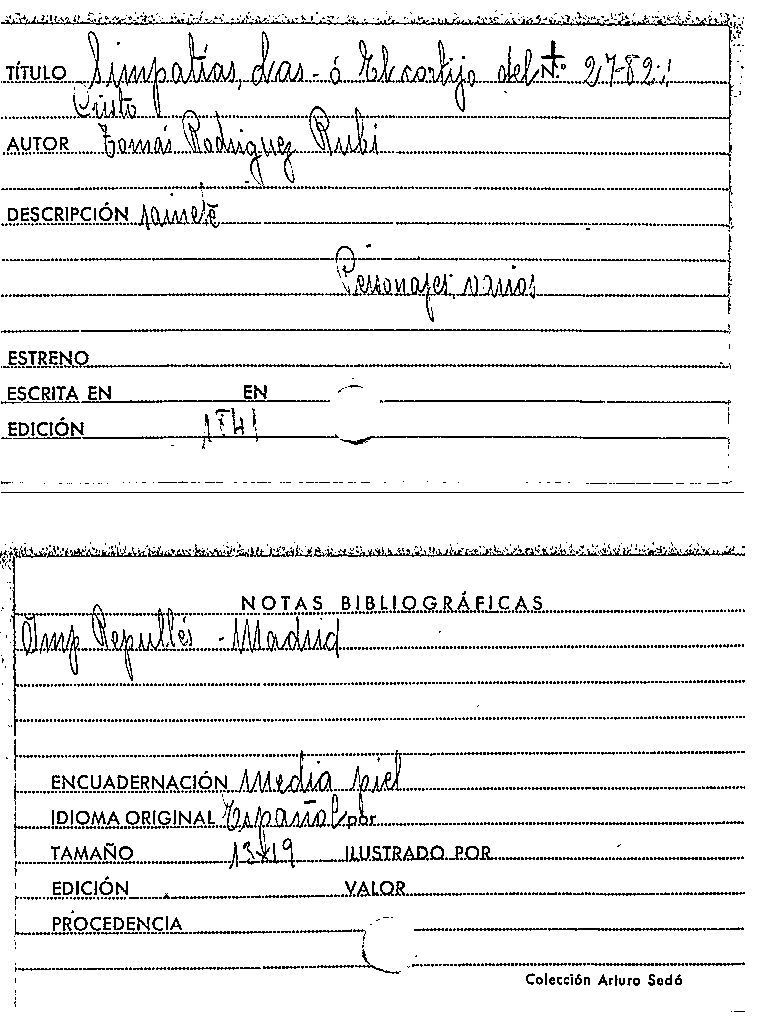 TÍTULO Simpatías, Las - ó El cortijo del N.º 27-821
Cristo
AUTOR Tomás Rodriguez Rubi
DESCRIPCIÓN sainete
Personajes, varios
ESTRENO
ESCRITA EN EN
EDICIÓN 1841
NOTAS BIBLIOGRÁFICAS
Imp Repullés - Madrid
ENCUADERNACIÓN Media piel
IDIOMA ORIGINAL Español por
TAMAÑO 13x19 ILUSTRADO POR
EDICIÓN VALOR
PROCEDENCIA
Colección Arturo Sedó